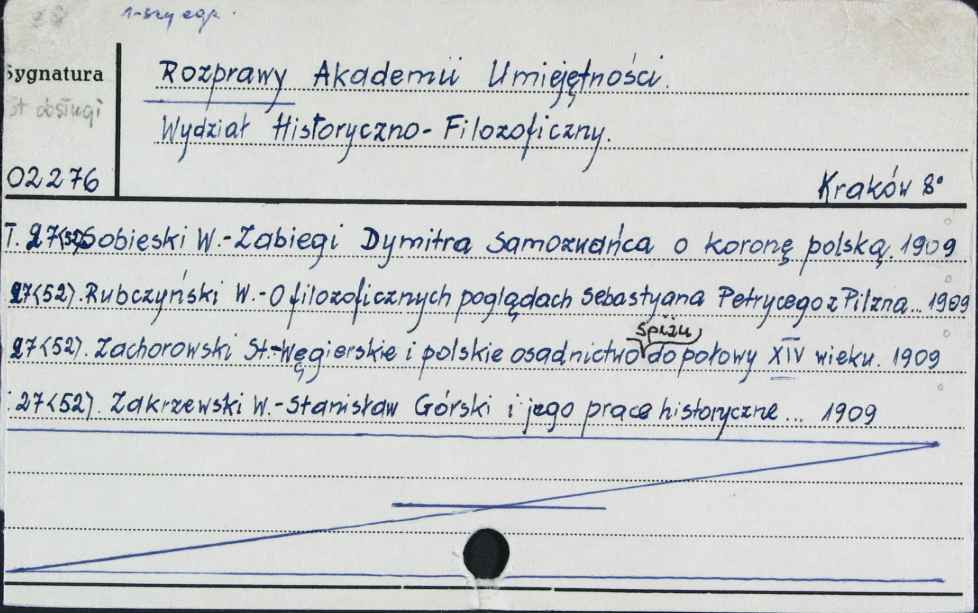 1-szy egz.
Rozprawy Akademii Umiejętności.
Sygnatura
st obsługi
Wydział Historyczno-Filozoficzny.
02276
Kraków 8°
T. 27(52) Sobieski W.-Zabiegi Dymitra Samozwańca o koronę polską. 1909
27(52). Rubczyński W.-O filozoficznych poglądach Sebastyana Petrycego z Pilzna... 1909
spiżu
27(52). Zachorowski St.-Węgierskie i polskie osadnictwo do połowy XIV wieku. 1909
27(52). Zakrzewski W.-Stanisław Górski i jego prace historyczne... 1909